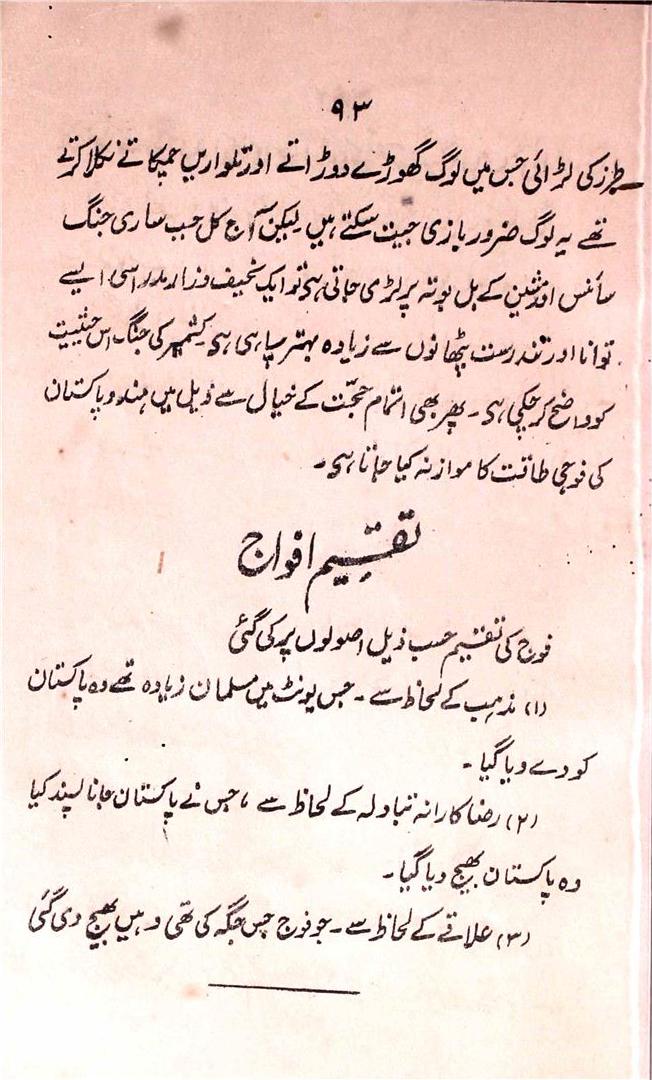 ۹۳
طرز کی لڑائی جس میں لوگ گھوڑے دوڑاتے اور تلواریں چمکاتے نکلا کرتے
تھے یہ لوگ ضرور بازی جیت سکتے ہیں لیکن آج کل جب ساری جنگ
سائنس اور مشین کے بل بوتہ پر لڑی جاتی ہی تو ایک نحیف و زار مدراسی ایسے
توانا اور تندرست پٹھانوں سے زیادہ بہتر سپاہی ہی کشمیر کی جنگ اس حیثیت
کو واضح کر چکی ہی۔ پھر بھی اتمام حجّت کے خیال سے ذیل میں ہند و پاکستان
کی فوجی طاقت کا موازنہ کیا جاتا ہی۔
تقسیم افواج
فوج کی تقسیم حسب ذیل اصولوں پر کی گئی
(۱) مذہب کے لحاظ سے۔ جس یونٹ میں مسلمان زیادہ تھے وہ پاکستان
کو دے دیا گیا۔
(۲) رضا کارانہ تبادلہ کے لحاظ سے، جس نے پاکستان جانا پسند کیا
وہ پاکستان بھیج دیا گیا۔
(۳) علاقے کے لحاظ سے۔ جو فوج جس جگہ کی تھی وہیں بھیج دی گئی